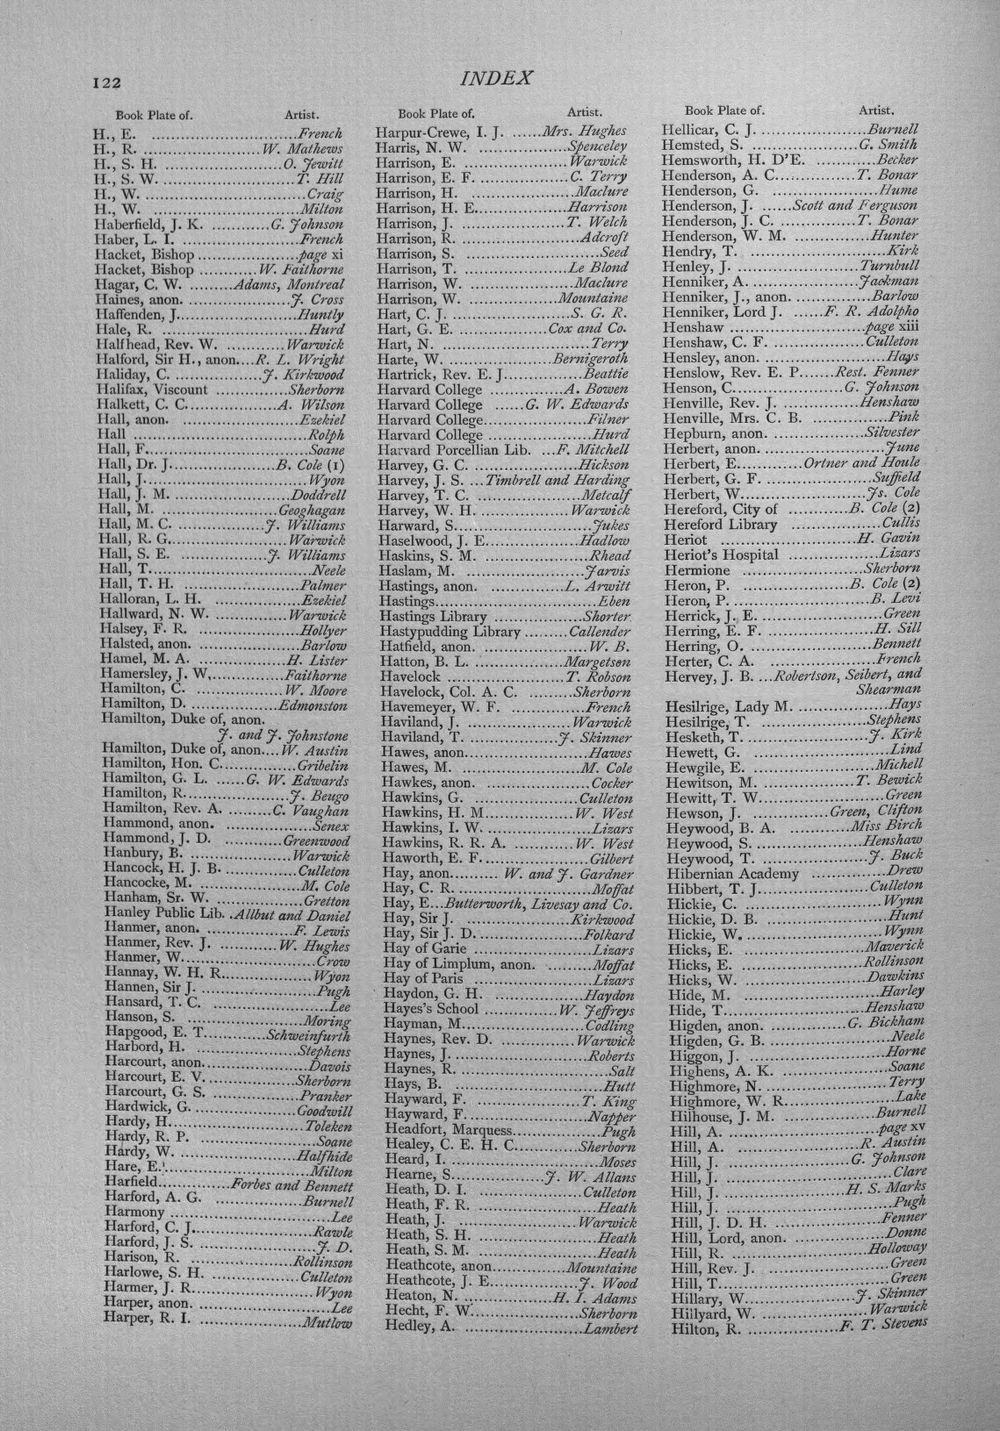 122
INDEX
Book Plate of. Artist.
H., E. ..... French
H., R. ..... W. Mathews
H., S. H. ..... O. Jewitt
H., S. W. ..... T. Hill
H., W. ..... Craig
H., W. ..... Milton
Haberfield, J. K. ..... G. Johnson
Haber, L. I. ..... French
Hacket, Bishop ..... page xi
Hacket, Bishop ..... W. Faithorne
Hagar, C. W. ..... Adams, Montreal
Haines, anon. ..... J. Cross
Haffenden, J. ..... Huntly
Hale, R. ..... Hurd
Halfhead, Rev. W. ..... Warwick
Halford, Sir H., anon. ..... R. L. Wright
Haliday, C. ..... J. Kirkwood
Halifax, Viscount ..... Sherborn
Halkett, C. C. ..... A. Wilson
Hall, anon. ..... Ezekiel
Hall ..... Rolph
Hall, F. ..... Soane
Hall, Dr. J. ..... B. Cole (1)
Hall, J. ..... Wyon
Hall, J. M. ..... Doddrell
Hall, M. ..... Geoghagan
Hall, M. C. ..... J. Williams
Hall, R. G. ..... Warwick
Hall, S. E. ..... J. Williams
Hall, T. ..... Neele
Hall, T. H. ..... Palmer
Halloran, L. H. ..... Ezekiel
Hallward, N. W. ..... Warwick
Halsey, F. R. ..... Hollyer
Halsted, anon. ..... Barlow
Hamel, M. A. ..... H. Lister
Hamersley, J. W. ..... Faithorne
Hamilton, C. ..... W. Moore
Hamilton, D. ..... Edmonston
Hamilton, Duke of, anon.
J. and J. Johnstone
Hamilton, Duke of, anon. ..... W. Austin
Hamilton, Hon. C. ..... Gribelin
Hamilton, G. L. ..... G. W. Edwards
Hamilton, R. ..... J. Beugo
Hamilton, Rev. A. ..... C. Vaughan
Hammond, anon. ..... Senex
Hammond, J. D. ..... Greenwood
Hanbury, B. ..... Warwick
Hancock, H. J. B. ..... Culleton
Hancocke, M. ..... M. Cole
Hanham, Sr. W. ..... Gretton
Hanley Public Lib. ..... Allbut and Daniel
Hanmer, anon. ..... F. Lewis
Hanmer, Rev. J. ..... W. Hughes
Hanmer, W. ..... Crow
Hannay, W. H. R. ..... Wyon
Hannen, Sir J. ..... Pugh
Hansard, T. C. ..... Lee
Hanson, S. ..... Moring
Hapgood, E. T. ..... Schweinfurth
Harbord, H. ..... Stephens
Harcourt, anon. ..... Davois
Harcourt, E. V. ..... Sherborn
Harcourt, G. S. ..... Pranker
Hardwick, G. ..... Goodwill
Hardy, H. ..... Toleken
Hardy, R. P. ..... Soane
Hardy, W. ..... Halfhide
Hare, E. ..... Milton
Harfield ..... Forbes and Bennett
Harford, A. G. ..... Burnell
Harmony ..... Lee
Harford, C. J. ..... Rawle
Harford, J. S. ..... J. D.
Harison, R. ..... Rollinson
Harlowe, S. H. ..... Culleton
Harmer, J. R. ..... Wyon
Harper, anon. ..... Lee
Harper, R. I. ..... Mutlow
Book Plate of. Artist.
Harpur-Crewe, I. J. ..... Mrs. Hughes
Harris, N. W. ..... Spenceley
Harrison, E. ..... Warwick
Harrison, E. F. ..... C. Terry
Harrison, H. ..... Maclure
Harrison, H. E. ..... Harrison
Harrison, J. ..... T. Welch
Harrison, R. ..... Adcroft
Harrison, S. ..... Seed
Harrison, T. ..... Le Blond
Harrison, W. ..... Maclure
Harrison, W. ..... Mountaine
Hart, C. J. ..... S. G. R.
Hart, G. E. ..... Cox and Co.
Hart, N. ..... Terry
Harte, W. ..... Bernigeroth
Hartrick, Rev. E. J. ..... Beattie
Harvard College ..... A. Bowen
Harvard College ..... G. W. Edwards
Harvard College ..... Filner
Harvard College ..... Hurd
Harvard Porcellian Lib. ..... F. Mitchell
Harvey, G. C. ..... Hickson
Harvey, J. S. ..... Timbrell and Harding
Harvey, T. C. ..... Metcalf
Harvey, W. H. ..... Warwick
Harward, S. ..... Jukes
Haselwood, J. E. ..... Hadlow
Haskins, S. M. ..... Rhead
Haslam, M. ..... Jarvis
Hastings, anon. ..... L. Arwitt
Hastings ..... Eben
Hastings Library ..... Shorter
Hastypudding Library ..... Callender
Hatfield, anon. ..... W. B.
Hatton, B. L. ..... Margetson
Havelock ..... T. Robson
Havelock, Col. A. C. ..... Sherborn
Havemeyer, W. F. ..... French
Haviland, J. ..... Warwick
Haviland, T. ..... J. Skinner
Hawes, anon. ..... Hawes
Hawes, M. ..... M. Cole
Hawkes, anon. ..... Cocker
Hawkins, G. ..... Culleton
Hawkins, H. M. ..... W. West
Hawkins, I. W. ..... Lizars
Hawkins, R. R. A. ..... W. West
Haworth, E. F. ..... Gilbert
Hay, anon. ..... W. and J. Gardner
Hay, C. R. ..... Moffat
Hay, E. ..... Butterworth, Livesay and Co.
Hay, Sir J. ..... Kirkwood
Hay, Sir J. D. ..... Folkard
Hay of Garie ..... Lizars
Hay of Limplum, anon. ..... Moffat
Hay of Paris ..... Lizars
Haydon, G. H. ..... Haydon
Hayes's School ..... W. Jeffreys
Hayman, M. ..... Codling
Haynes, Rev. D. ..... Warwick
Haynes, J. ..... Roberts
Haynes, R. ..... Salt
Hays, B. ..... Hutt
Hayward, F. ..... T. King
Hayward, F. ..... Napper
Headfort, Marquess. ..... Pugh
Healey, C. E. H. C. ..... Sherborn
Heard, I. ..... Moses
Hearne, S. ..... J. W. Allans
Heath, D. I. ..... Culleton
Heath, F. R. ..... Heath
Heath, J. ..... Warwick
Heath, S. H. ..... Heath
Heath, S. M. ..... Heath
Heathcote, anon. ..... Mountaine
Heathcote, J. E. ..... J. Wood
Heaton, N. ..... H. I. Adams
Hecht, F. W. ..... Sherborn
Hedley, A. ..... Lambert
Book Plate of. Artist.
Hellicar, C. J. ..... Burnell
Hemsted, S. ..... G. Smith
Hemsworth, H. D'E. ..... Becker
Henderson, A. C. ..... T. Bonar
Henderson, G. ..... Hume
Henderson, J. ..... Scott and Ferguson
Henderson, J. C. ..... T. Bonar
Henderson, W. M. ..... Hunter
Hendry, T. ..... Kirk
Henley, J. ..... Turnbull
Henniker, A. ..... Jackman
Henniker, J., anon. ..... Barlow
Henniker, Lord J. ..... F. R. Adolpho
Henshaw ..... page xiii
Henshaw, C. F. ..... Culleton
Hensley, anon. ..... Hays
Henslow, Rev. E. P. ..... Rest. Fenner
Henson, C. ..... G. Johnson
Henville, Rev. J. ..... Henshaw
Henville, Mrs. C. B. ..... Pink
Hepburn, anon. ..... Silvester
Herbert, anon. ..... June
Herbert, E. ..... Ortner and Houle
Herbert, G. F. ..... Suffield
Herbert, W. ..... Js. Cole
Hereford, City of ..... B. Cole (2)
Hereford Library ..... Cullis
Heriot ..... H. Gavin
Heriot's Hospital ..... Lizars
Hermione ..... Sherborn
Heron, P. ..... B. Cole (2)
Heron, P. ..... B. Levi
Herrick, J. E. ..... Green
Herring, E. F. ..... H. Sill
Herring, O. ..... Bennett
Herter, C. A. ..... French
Hervey, J. B. ..... Robertson, Seibert, and
Shearman
Hesilrige, Lady M. ..... Hays
Hesilrige, T. ..... Stephens
Hesketh, T. ..... J. Kirk
Hewett, G. ..... Lind
Hewgile, E. ..... Michell
Hewitson, M. ..... T. Bewick
Hewitt, T. W. ..... Green
Hewson, J. ..... Green, Clifton
Heywood, B. A. ..... Miss Birch
Heywood, S. ..... Henshaw
Heywood, T. ..... J. Buck
Hibernian Academy ..... Drew
Hibbert, T. J. ..... Culleton
Hickie, C. ..... Wynn
Hickie, D. B. ..... Hunt
Hickie, W. ..... Wynn
Hicks, E. ..... Maverick
Hicks, E. ..... Rollinson
Hicks, W. ..... Dawkins
Hide, M. ..... Harley
Hide, T. ..... Henshaw
Higden, anon. ..... G. Bickham
Higden, G. B. ..... Neele
Higgon, J. ..... Horne
Highens, A. K. ..... Soane
Highmore, N. ..... Terry
Highmore, W. R. ..... Lake
Hilhouse, J. M. ..... Burnell
Hill, A. ..... page xv
Hill, A. ..... R. Austin
Hill, J. ..... G. Johnson
Hill, J. ..... Clare
Hill, J. ..... H. S. Marks
Hill, J. ..... Pugh
Hill, J. D. H. ..... Fenner
Hill, Lord, anon. ..... Donne
Hill, R. ..... Holloway
Hill, Rev. J. ..... Green
Hill, T. ..... Green
Hillary, W. ..... J. Skinner
Hillyard, W. ..... Warwick
Hilton, R. ..... F. T. Stevens